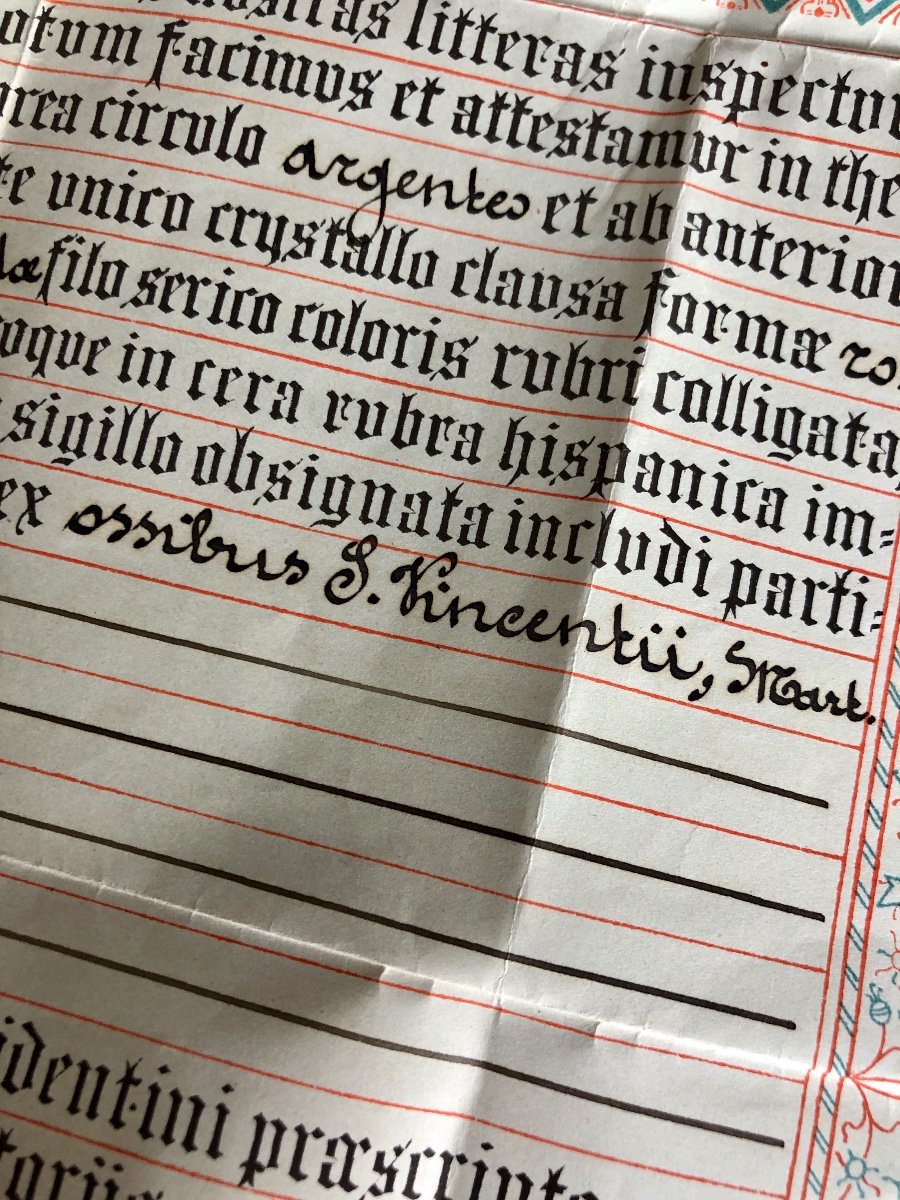 nostras litteras inspectur
otum facimus et attestamur in the
rea circulo argenteo et ab anterior
te unico crystallo clausa formæ ro
dæ filo serico coloris rubri colligata,
oque in cera rubra hispanica im=
sigillo obsignata includi parti=
ex ossibus S. Vincentii, Mart.
identini præscripto